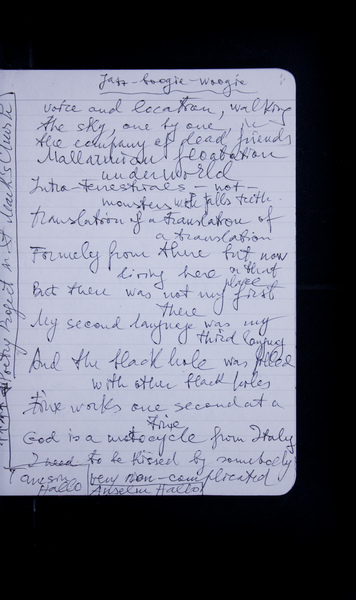 Jazz-boogie-woogie
voice and location, walking
the sky, one by one, in
the company of dead friends
Mallarmian floatation
underworld
Intra-terrestrials - not -
monsters with falls teeth.
translation of a translation of
a translation
Formely from there but now
living here or that
place
But there was not my first
there
My second language was my
third
And the black hole was filled
with other black holes
Time works one second at a
time
God is a motocycle from Italy
I need to be kissed by somebody
very non-complicated
Hallo
Anselm Hallo
Poetry Project in St Mark's Church